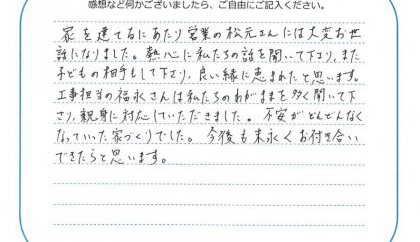 感想など何かございましたら、ご自由にご記入ください。
家を建てるにあたり営業の松元さんには大変お世
話になりました。熱心に私たちの話を聞いて下さり、また
子どもの相手もして下さり、良い縁に恵まれたと思います。
工事担当の福永さんは私たちのわがままを多く聞いて下
さり、親身に対応していただきました。不安がどんどんなく
なっていた家づくりでした。今後も末永くお付き合い
できたらと思います。